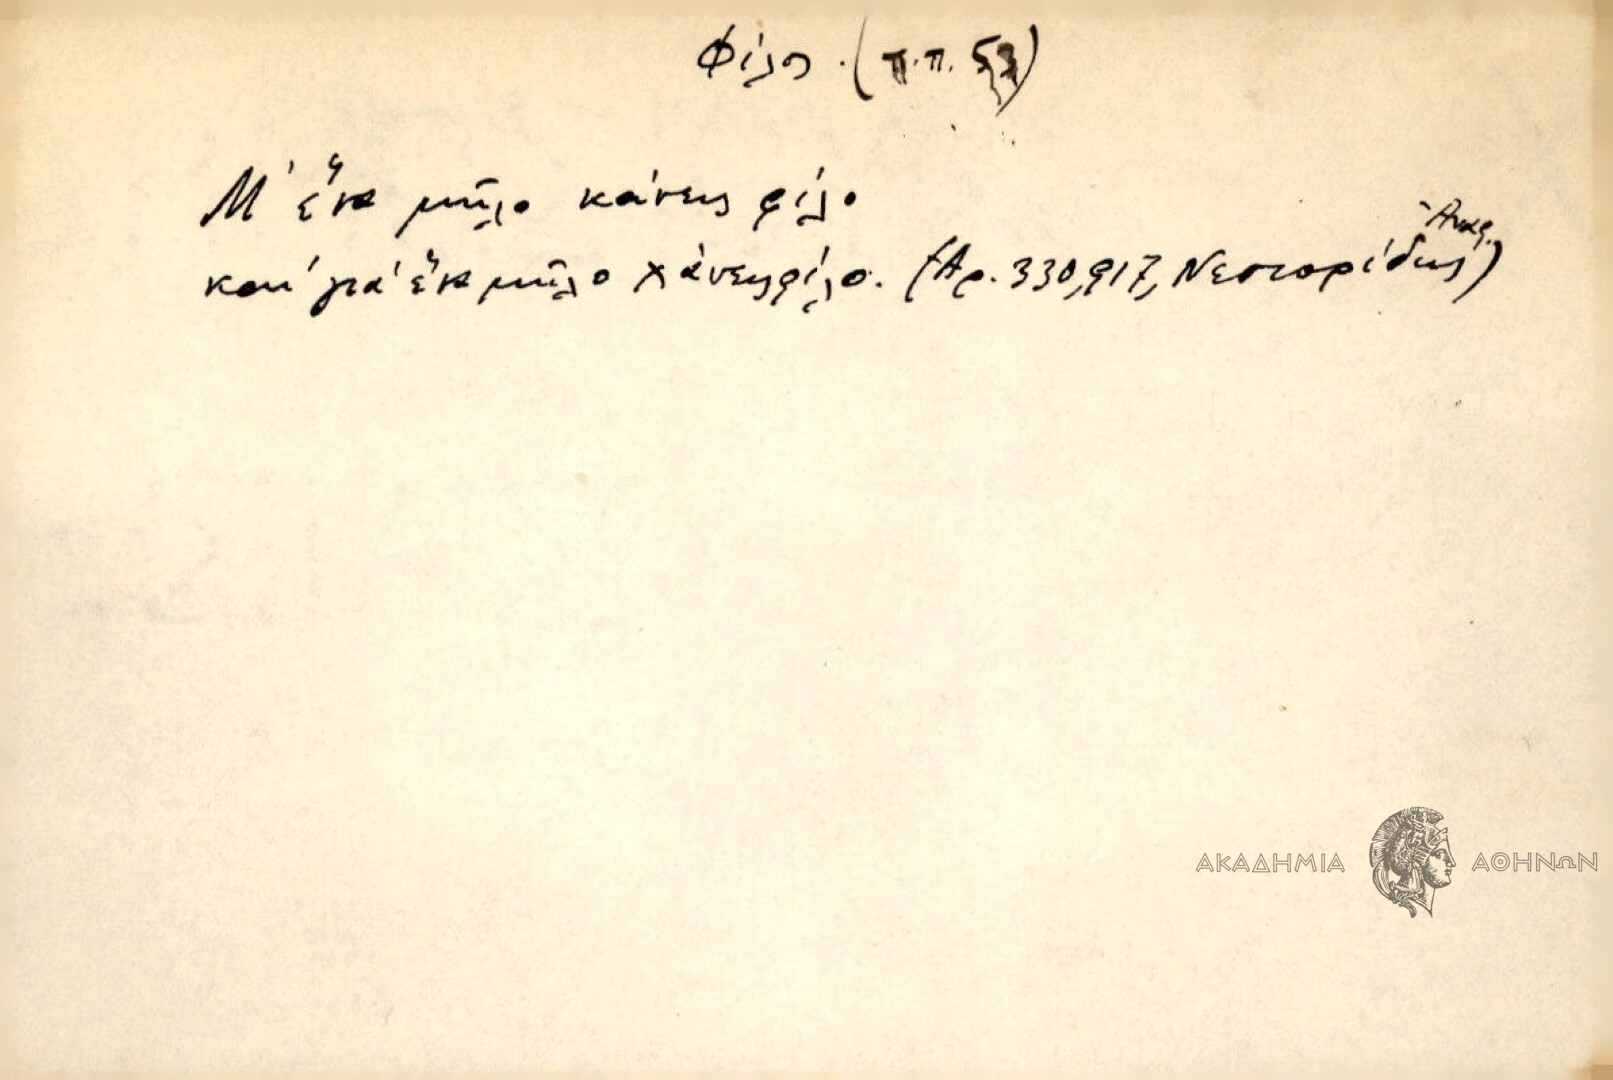 Φίλος. (π.π. 53)
Μ' ἕνα μῆλο κάνεις φίλο
Ἀνας.
καὶ γιὰ ἕνα μῆλο χάνεις φίλο. (Ἀρ. 330, 917, Νεστορίδης)
ΑΚΑΔΗΜΙΑ ΑΘΗΝΩΝ